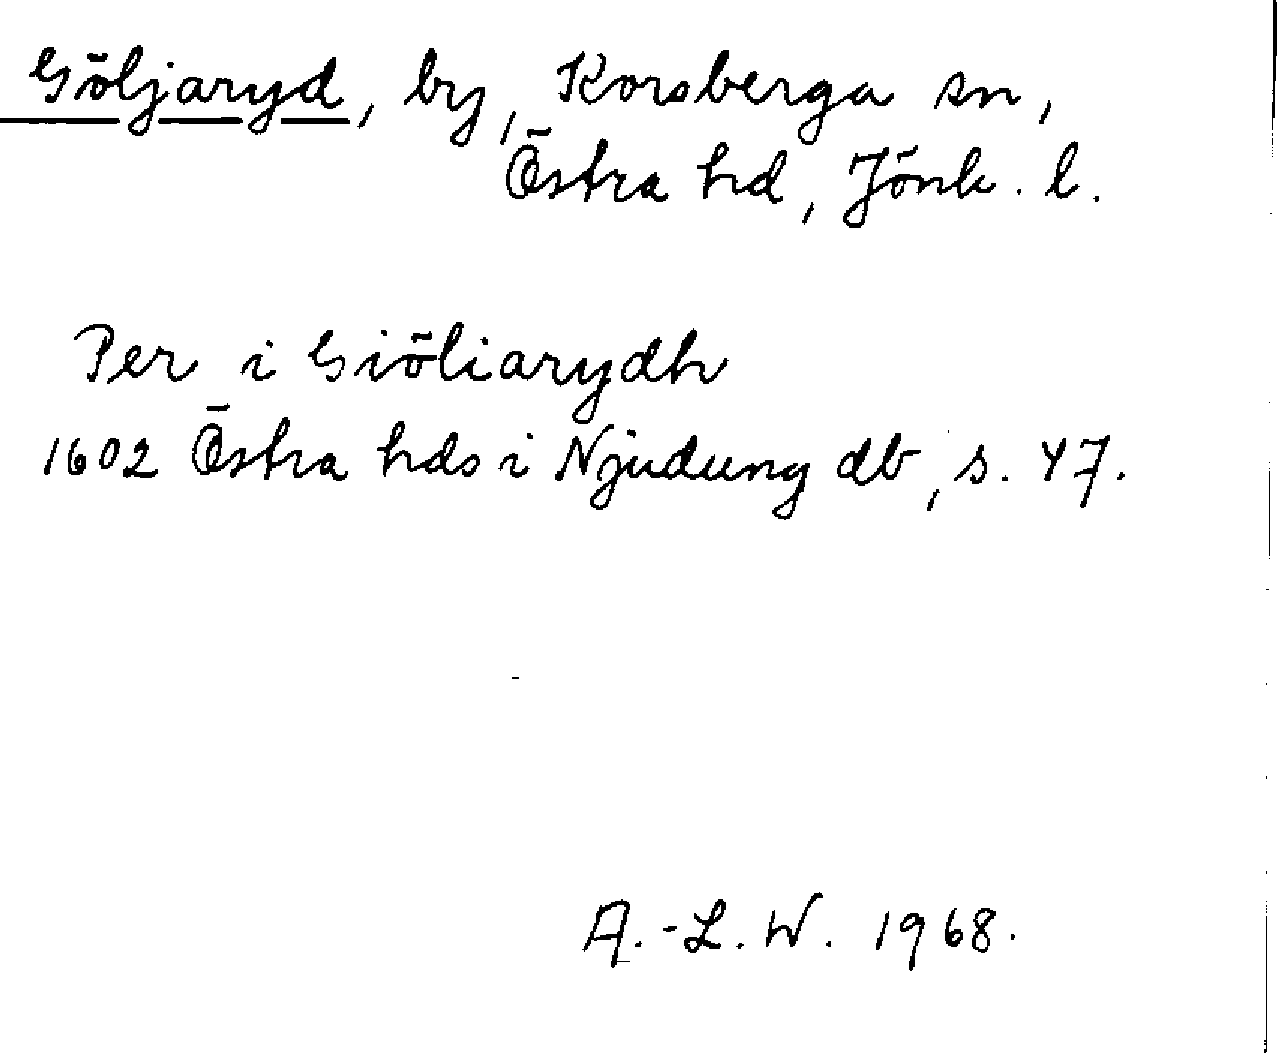 Göljaryd, by, Korsberga sn,
Östra hd, Jönk. l.
Per i Giöliarydh
1602 Östra hds i Njudung db, s. 47.
A.-L. W. 1968.